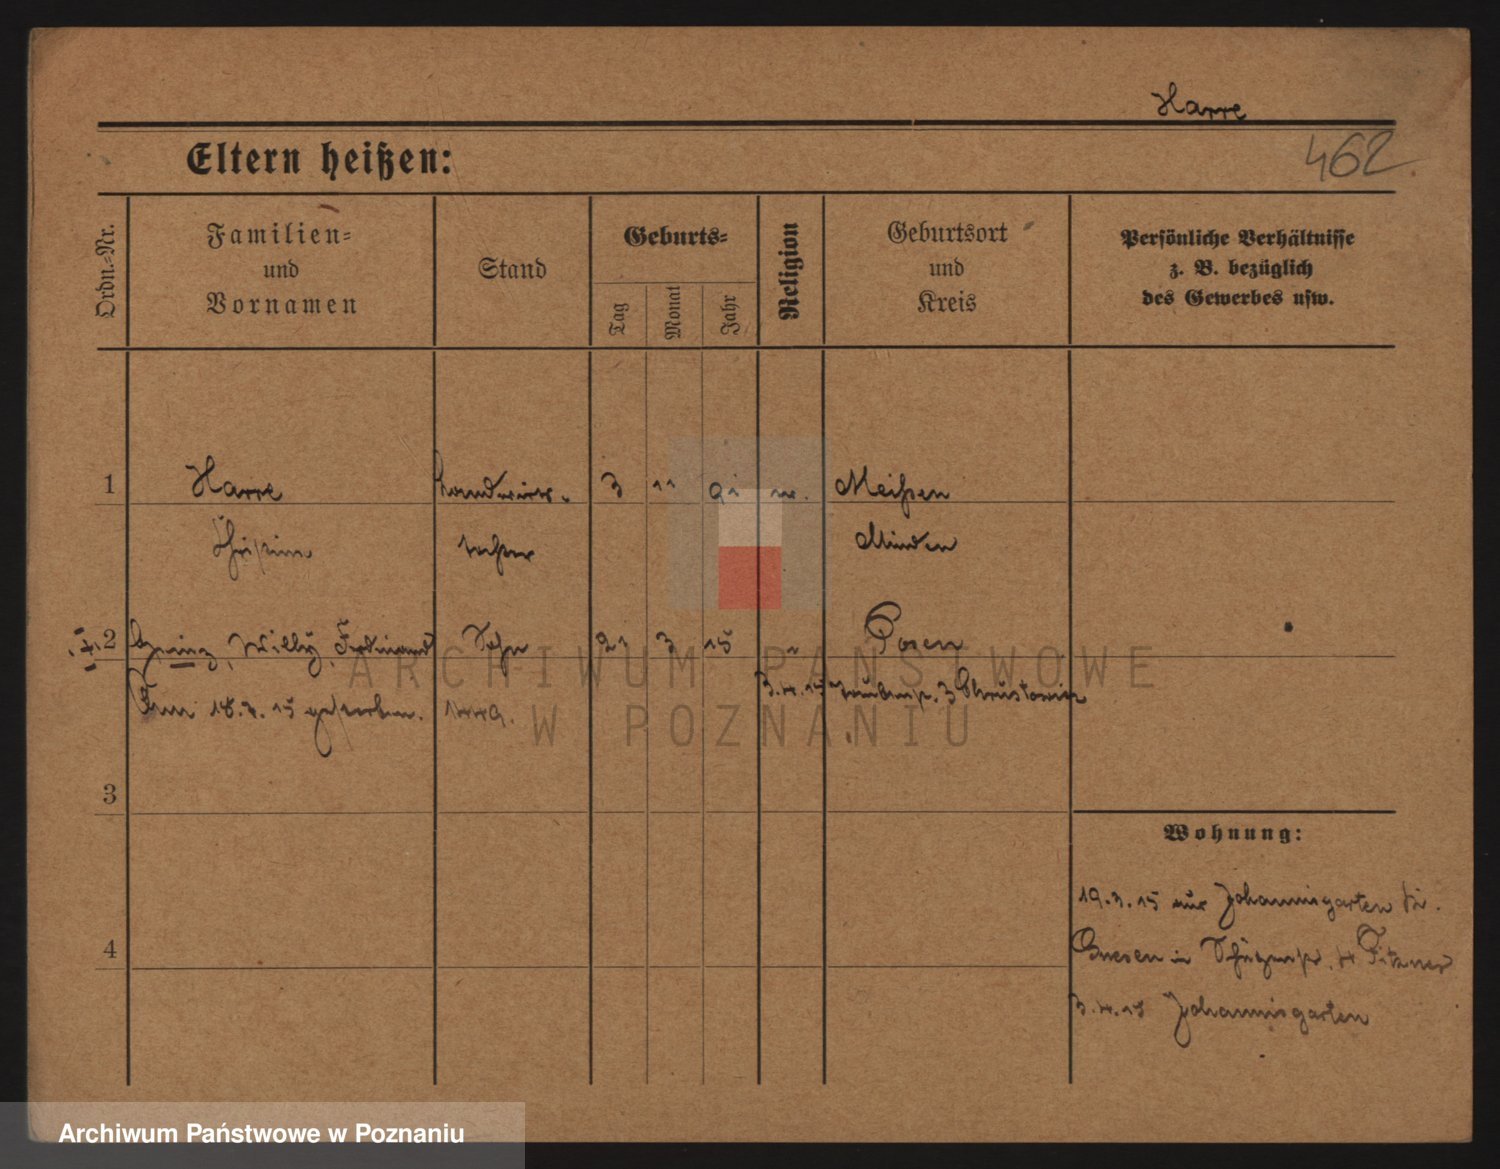 Harre
462
Eltern heißen:
Ordn.-Nr.
Familien-
und
Vornamen
Stand
Geburts-
Tag
Monat
Jahr
Religion
Geburtsort
und
Kreis
Persönliche Verhältnisse
z. B. bezüglich
des Gewerbes usw.
1 Harre 3 11 91 Meißen
Minden
2 Heinz, Willy, Ferdinand Sohn 21 3 15 " Posen
18.3.15 gestorben. 1449.
3.4.15
3
Wohnung:
19.3.15 aus Johannisgarten
Gnesen in
4
3.4.15 Johannisgarten
ARCHIWUM PAŃSTWOWE
W POZNANIU
Archiwum Państwowe w Poznaniu